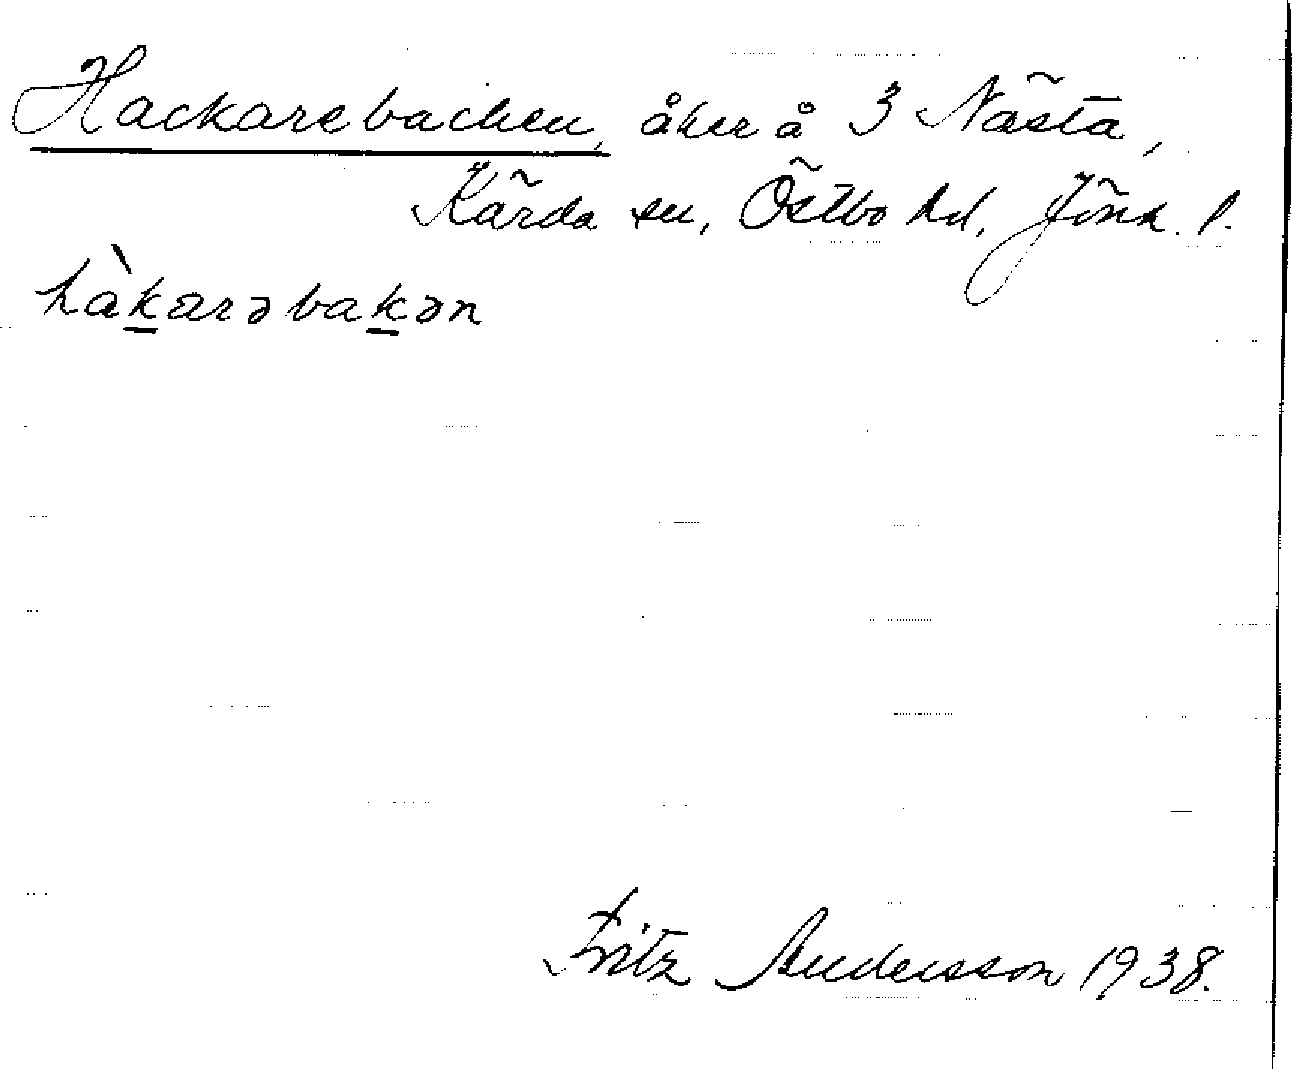 Hackarebacken, åker å 3 Nästa,
Kärda sn, Östbo hd, Jönk. l.
hàkarəbakən
Fritz Andersson 1938.